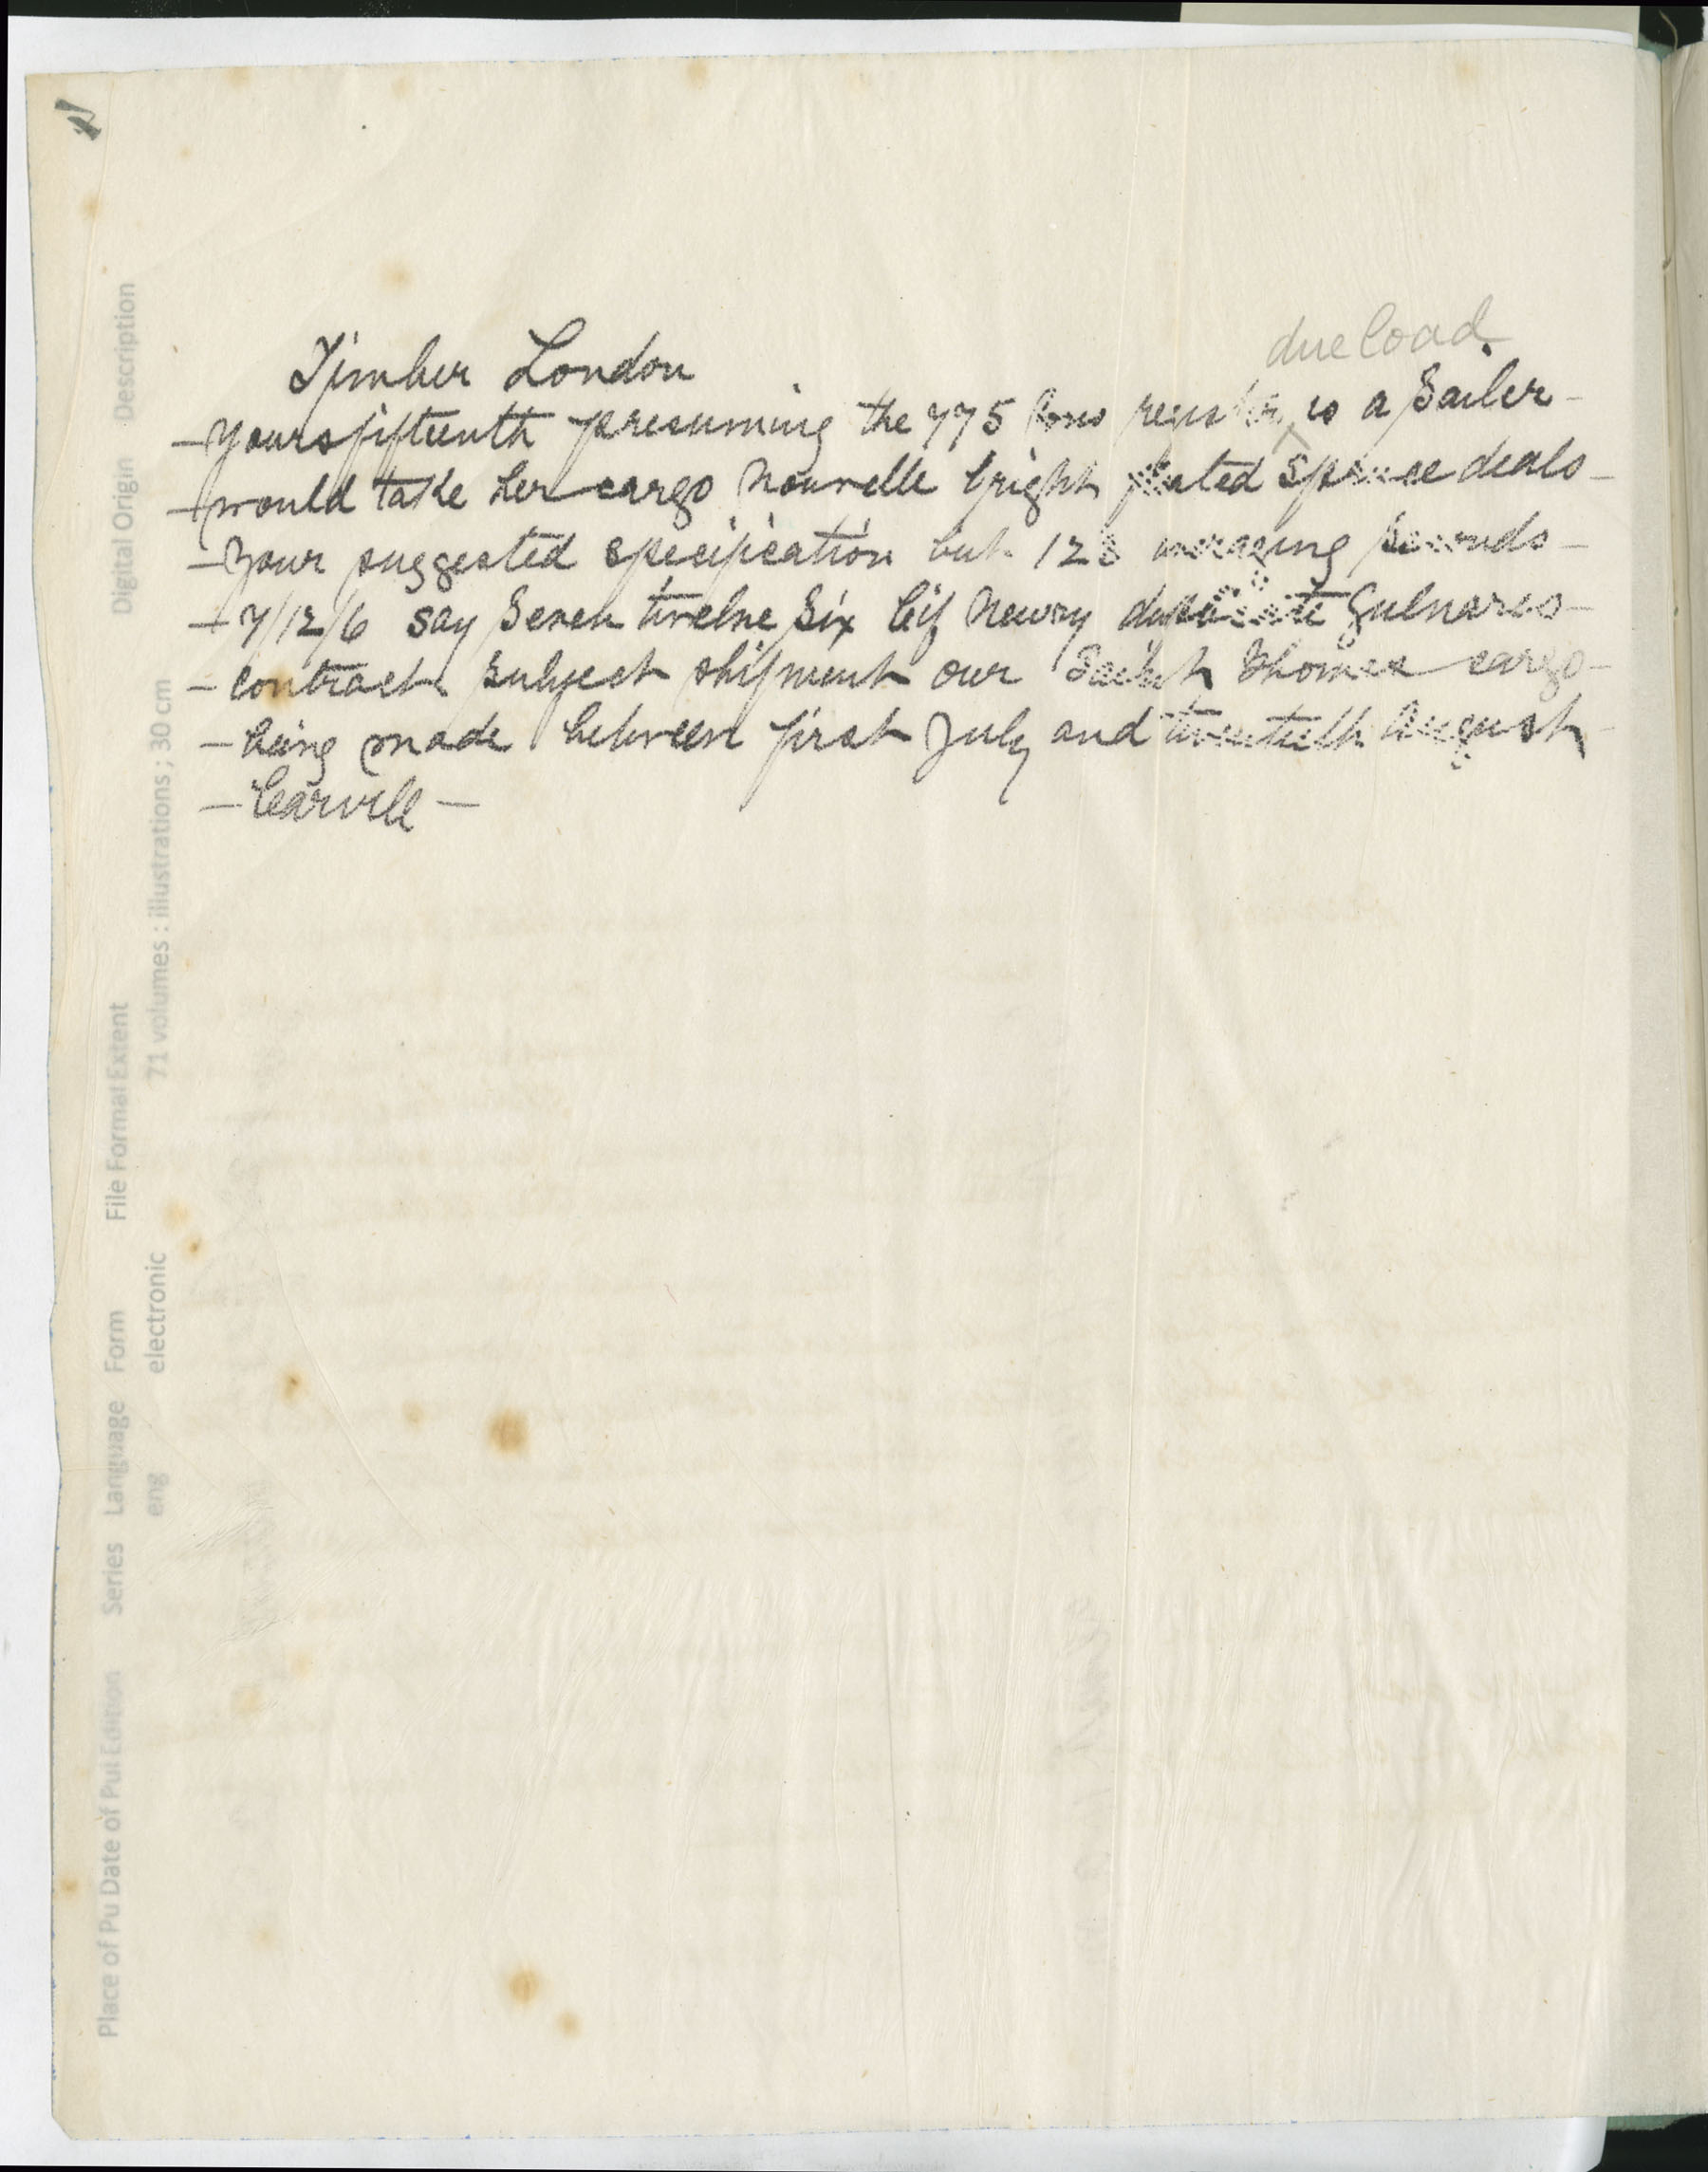 due load
Timber London
— Yours fifteenth presuming the 775 tons register is a Sailer —
— would take her cargo Nouvelle bright floated Spruce deals —
— Your suggested specification but 12s averaging seconds —
— 7/12/6 say Seven twelve Six Cif Newry duplicate Gulnares —
— contract subject shipment our Saint Thomas cargo —
— being made between first July and twentieth August —
— Carvill —
Place of Pu Date of Pul Edition Series Language Form File Format Extent Digital Origin Description
eng electronic 71 volumes : illustrations ; 30 cm